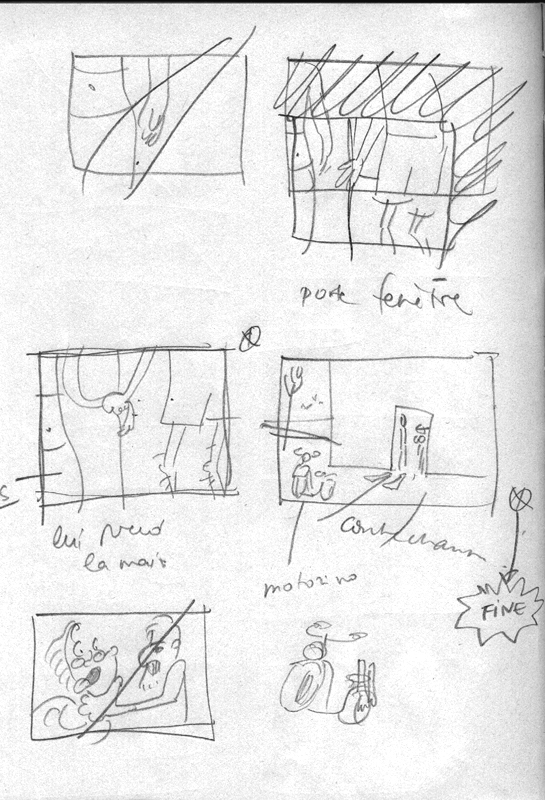 porte fenêtre
lui prend
la main
motorino
FINE